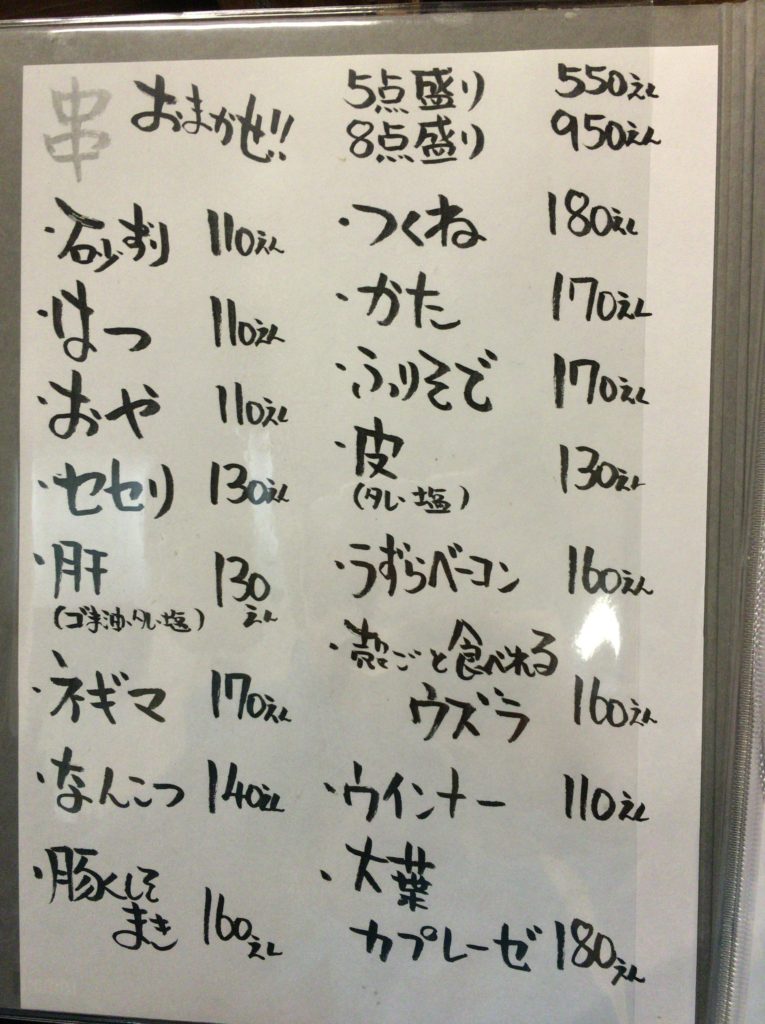 串 おまかせ!!
5点盛り 550えん
8点盛り 950えん
・砂ずり 110えん
・はつ 110えん
・おや 110えん
・セセリ 130えん
・肝 130えん
(ゴマ油・タレ・塩)
・ネギマ 170えん
・なんこつ 140えん
・豚くしそ
まき 160えん
・つくね 180えん
・かた 170えん
・ふりそで 170えん
・皮 130えん
(タレ・塩)
・うずらベーコン 160えん
・殻ごと食べれる
ウズラ 160えん
・ウインナー 110えん
・大葉
カプレーゼ 180えん